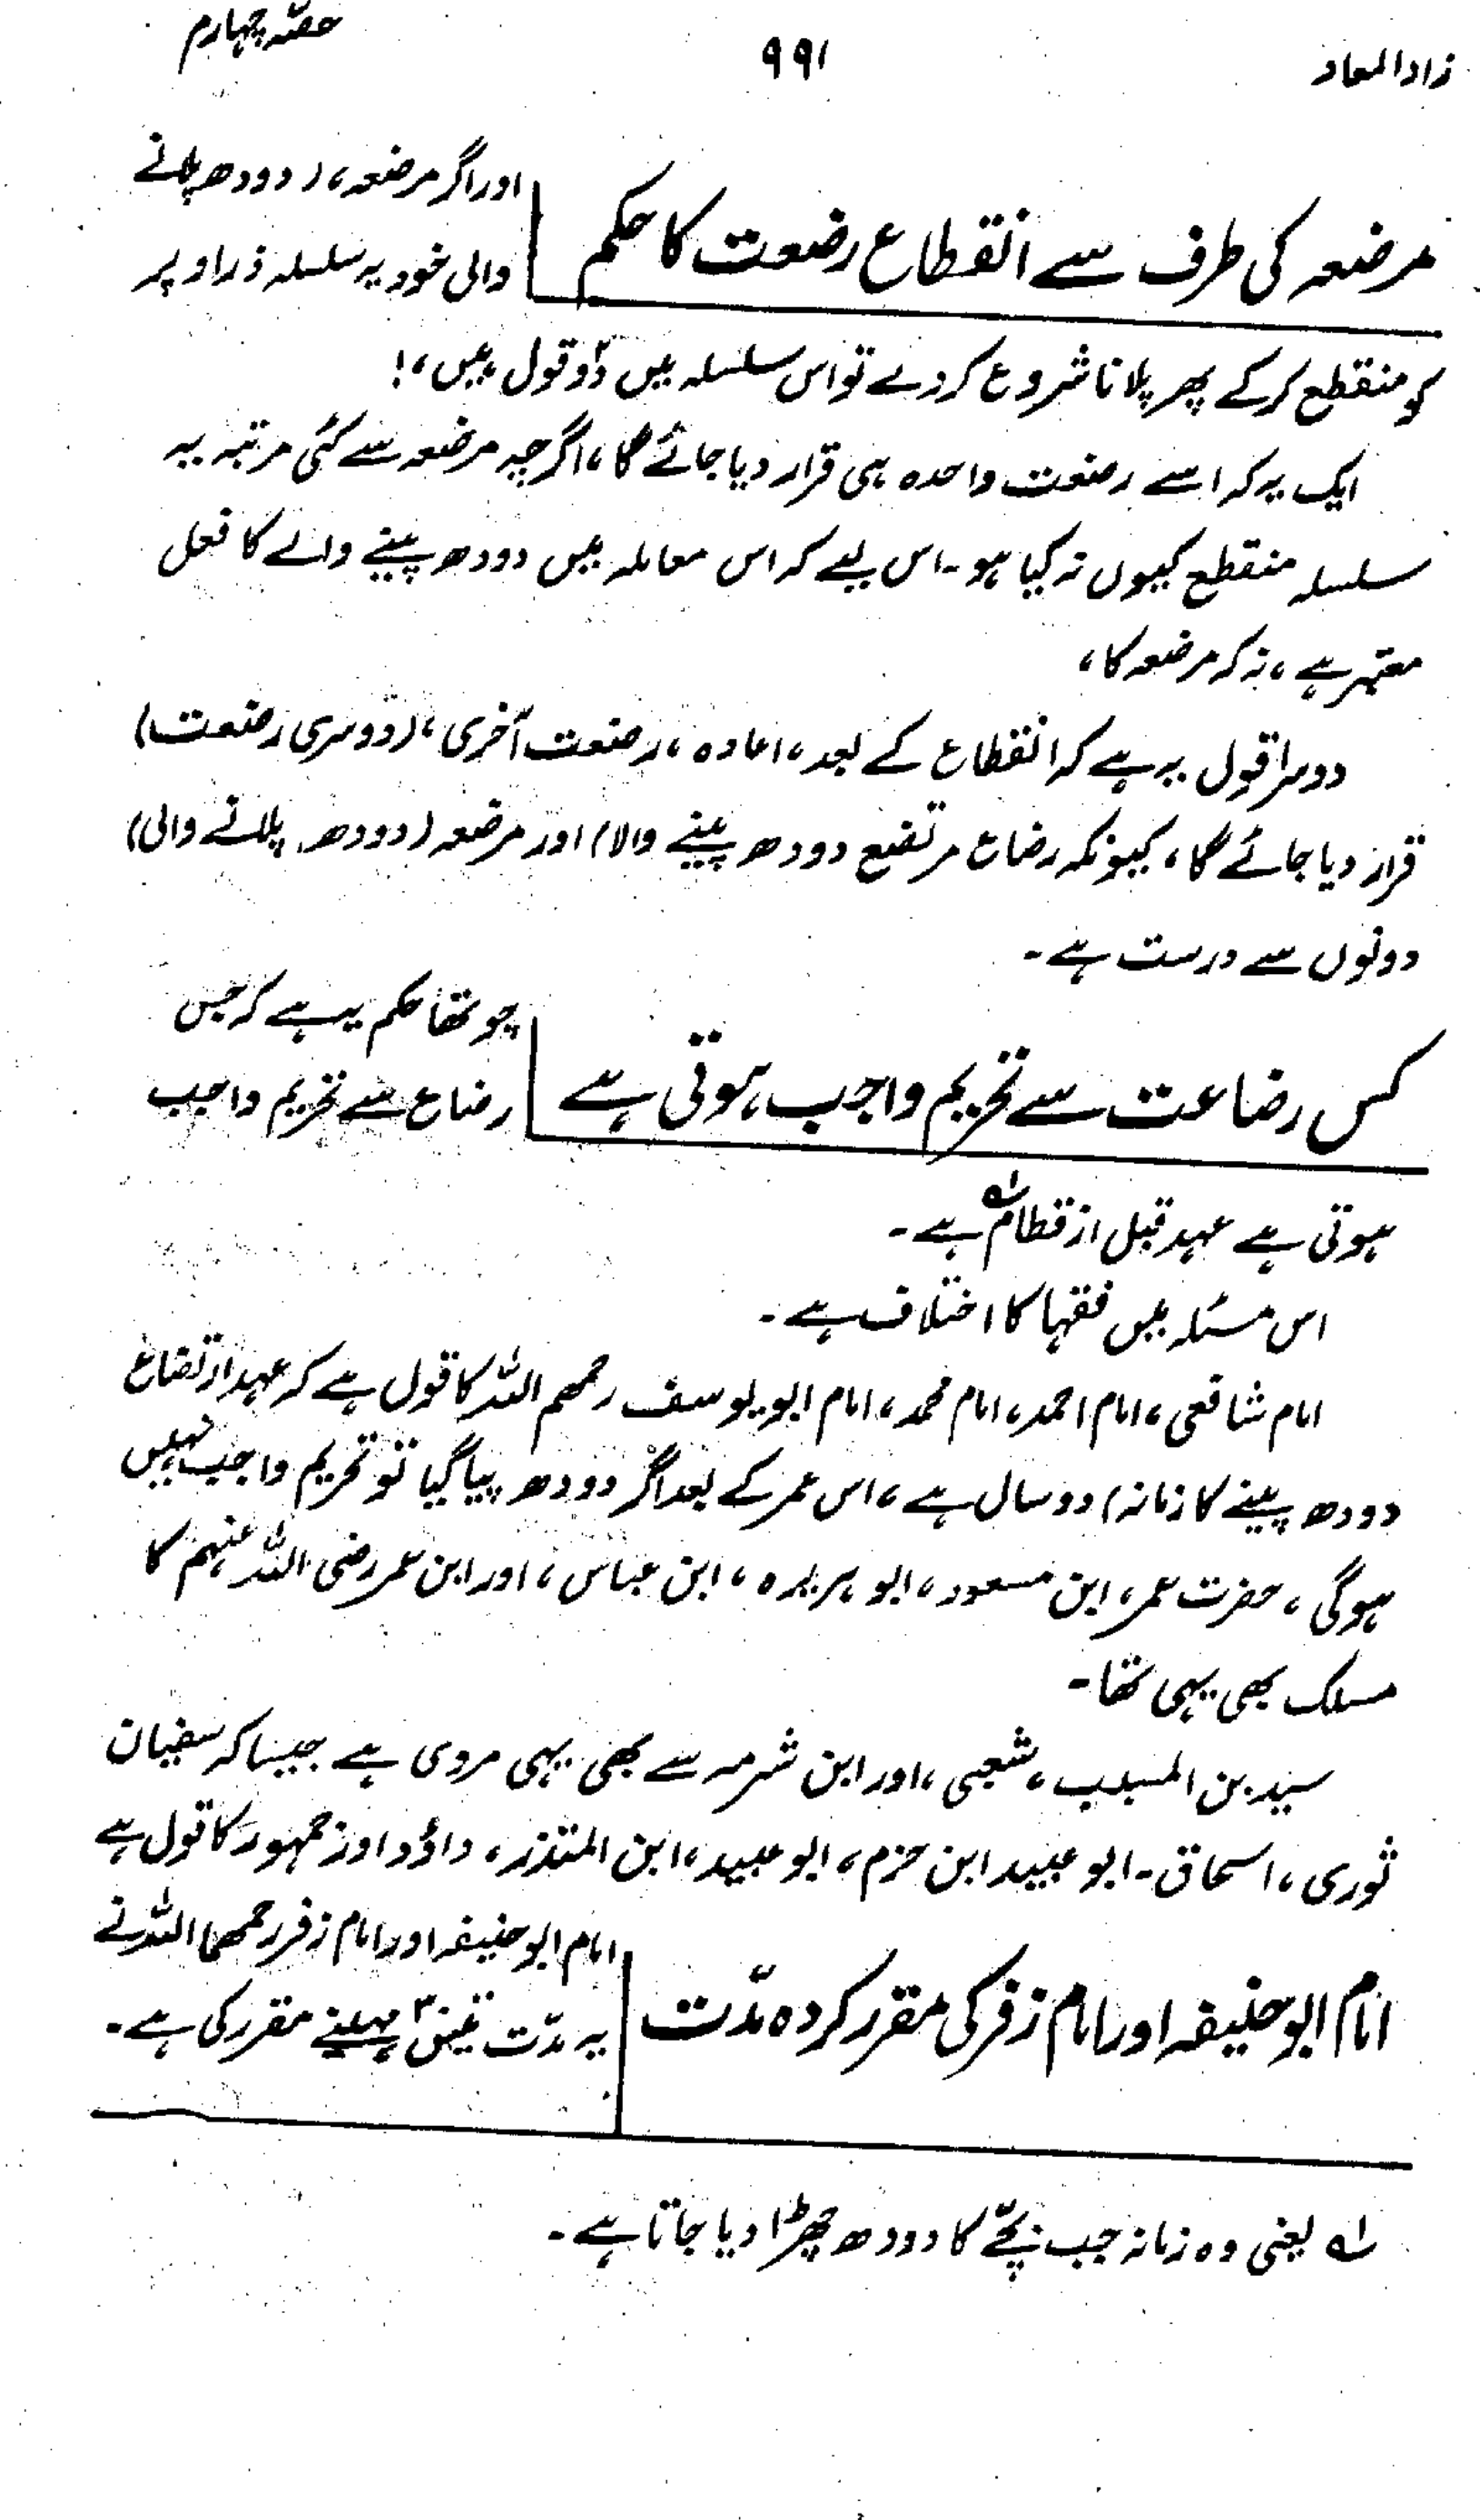 زادالمعاد
۹۹۱
حصّہ چہارم
مرضعہ کی طرف سے انقطاع رضعت کا حکم
اور اگر مرضعہ، (دودھ پلانے
والی خود یہ سلسلہ ذرا دیر
کو منقطع کرکے پھر پلانا شروع کردے تو اس سلسلہ میں دو۲ قول ہیں،!
ایک یہ کہ اسے رضعت واحدہ ہی قرار دیا جائے گا، اگرچہ مرضعہ سے کئی مرتبہ یہ
سلسلہ منقطع کیوں نہ کیا ہو۔ اس لیے کہ اس معاملہ میں دودھ پینے والے کا فعل
معتبر ہے، نہ کہ مرضعہ کا،
دوسرا قول یہ ہے کہ انقطاع کے بعد، اعادہ، رضعت اُخری، (دوسری رضعت)
قرار دیا جائے گا، کیونکہ رضاع مرتضع دودھ پینے والا) اور مرضعہ (دودھ پلانے والی)
دونوں سے درست ہے۔
کس رضاعت سے تحریم واجب ہوتی ہے
چوتھا حکم یہ ہے کہ جس
رضاع سے تحریم واجب
ہوتی ہے عہد قبل از فطام لہ ہے۔
اس مسئلہ میں فقہا کا اختلاف ہے۔
امام شافعی، امام احمد، امام محمد، امام ابو یوسف رحمہم اللہ کا قول ہے کہ عہد ارتضاع
دودھ پینے کا زمانہ) دو سال ہے، اس عمر کے بعد اگر دودھ پیا گیا تو تحریم واجب نہیں
ہوگی، حضرت عمر، ابن مسعود، ابو ہریرہ، ابن عباس، اور ابن عمر رضی اللہ عنہم کا
مسلک بھی یہی تھا۔
سید بن المسیب، شعبی، اور ابن شرمہ سے بھی یہی مروی ہے جیسا کہ سفیان
ثوری، اسحاق۔ ابو عبید ابن حزم، ابو عبید، ابن المنذر، داؤد اور جمہور کا قول ہے
امام ابو حنیفہ اور امام زفر کی مقرر کردہ مدّت
امام ابو حنیفہ اور امام زفر رحمھما اللہ نے
یہ مدّت تیس ۳ مہینے مقرر کی ہے۔
لہ یعنی وہ زمانہ جب بچّے کا دودھ چھڑا دیا جاتا ہے۔